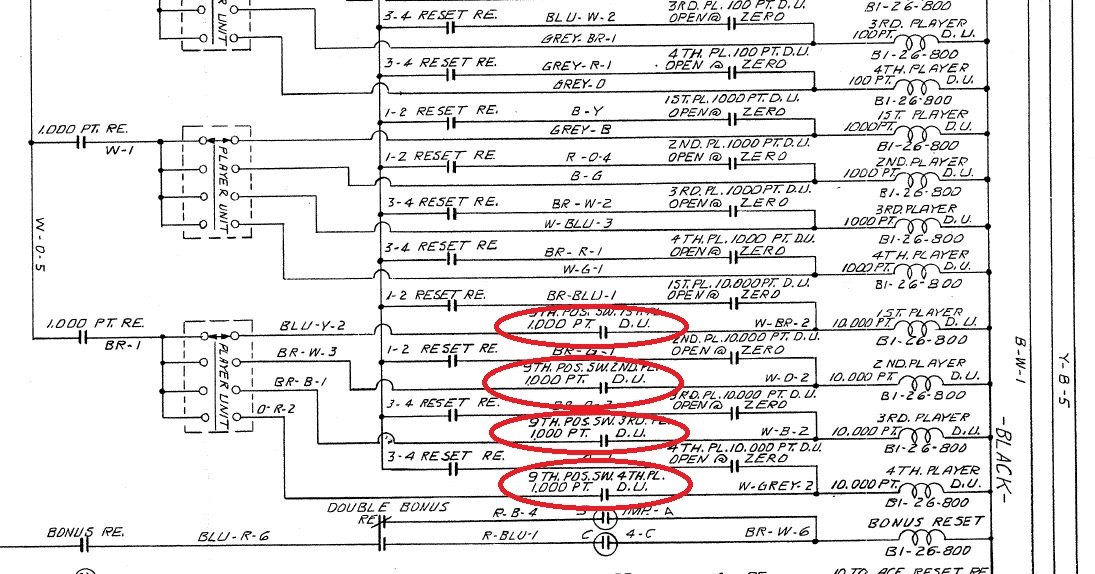 3RD. PL. 100 PT. D.U.
B1-26-800
3-4 RESET RE.
BLU-W-2
OPEN @ ZERO
3RD. PLAYER
UNIT
GREY-BR-1
100 PT. D.U.
4TH. PL. 100 PT. D.U.
B1-26-800
3-4 RESET RE.
GREY-R-1
OPEN @ ZERO
4TH. PLAYER
GREY-O
100 PT. D.U.
1ST. PL. 1000 PT. D.U.
B1-26-800
1-2 RESET RE.
B-Y
OPEN @ ZERO
1ST. PLAYER
1.000 PT. RE.
GREY-B
1000 PT. D.U.
W-1
2ND. PL. 1000 PT. D.U.
B1-26-800
1-2 RESET RE.
R-O-4
OPEN @ ZERO
2ND. PLAYER
PLAYER UNIT
B-G
1000 PT. D.U.
3RD. PL. 1000 PT. D.U.
B1-26-800
3-4 RESET RE.
BR-W-2
OPEN @ ZERO
3RD. PLAYER
W-BLU-3
1000 PT. D.U.
W-O-5
4TH. PL. 1000 PT. D.U.
B1-26-800
3-4 RESET RE.
BR-R-1
OPEN @ ZERO
4TH. PLAYER
W-G-1
1000 PT. D.U.
1ST. PL. 10.000 PT. D.U.
B1-26-800
1-2 RESET RE.
BR-BLU-1
OPEN @ ZERO
1ST. PLAYER
1.000 PT. RE.
BLU-Y-2
1.000 PT. D.U.
W-BR-2
10.000 PT. D.U.
BR-1
2ND. PL. 10.000 PT. D.U.
B1-26-800
BR-W-3
1-2 RESET RE.
BR-G-1
OPEN @ ZERO
2ND. PLAYER
PLAYER UNIT
9TH. POS. SW. 2ND. PL.
BR-B-1
1000 PT. D.U.
W-O-2
10.000 PT. D.U.
3RD. PL. 10.000 PT. D.U.
B1-26-800
O-R-2
3-4 RESET RE.
OPEN @ ZERO
3RD. PLAYER
9TH. POS. SW. 3RD. PL.
1,000 PT. D.U.
W-B-2
10.000 PT. D.U.
4TH. PL. 10.000 PT. D.U.
B1-26-800
3-4 RESET RE.
OPEN @ ZERO
4TH. PLAYER
9TH. POS. SW. 4TH. PL.
1,000 PT. D.U.
W-GREY-2
10.000 PT. D.U.
B1-26-800
B-W-1
Y-8-5
-BLACK-
DOUBLE BONUS
RE.
R-B-4
IMP.-A
BONUS RESET
BONUS RE.
BLU-R-6
R-BLU-1
C
4-C
BR-W-6
B1-26-800